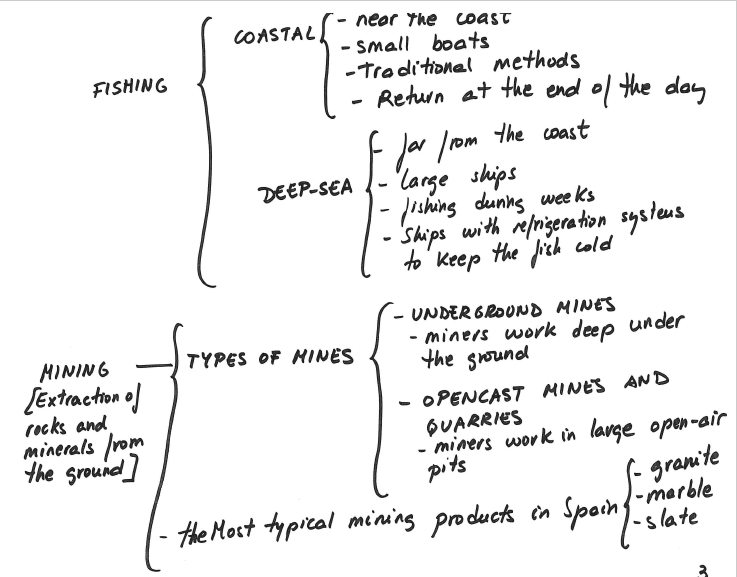 FISHING
COASTAL
- near the coast
- small boats
- Traditional methods
- Return at the end of the day
DEEP-SEA
- far from the coast
- Large ships
- fishing during weeks
- Ships with refrigeration systems
to keep the fish cold
MINING
[Extraction of
rocks and
minerals from
the ground]
TYPES OF MINES
- UNDERGROUND MINES
- miners work deep under
the ground
- OPENCAST MINES AND
QUARRIES
- miners work in large open-air
pits
- the Most typical mining products in Spain
- granite
- marble
- slate
3